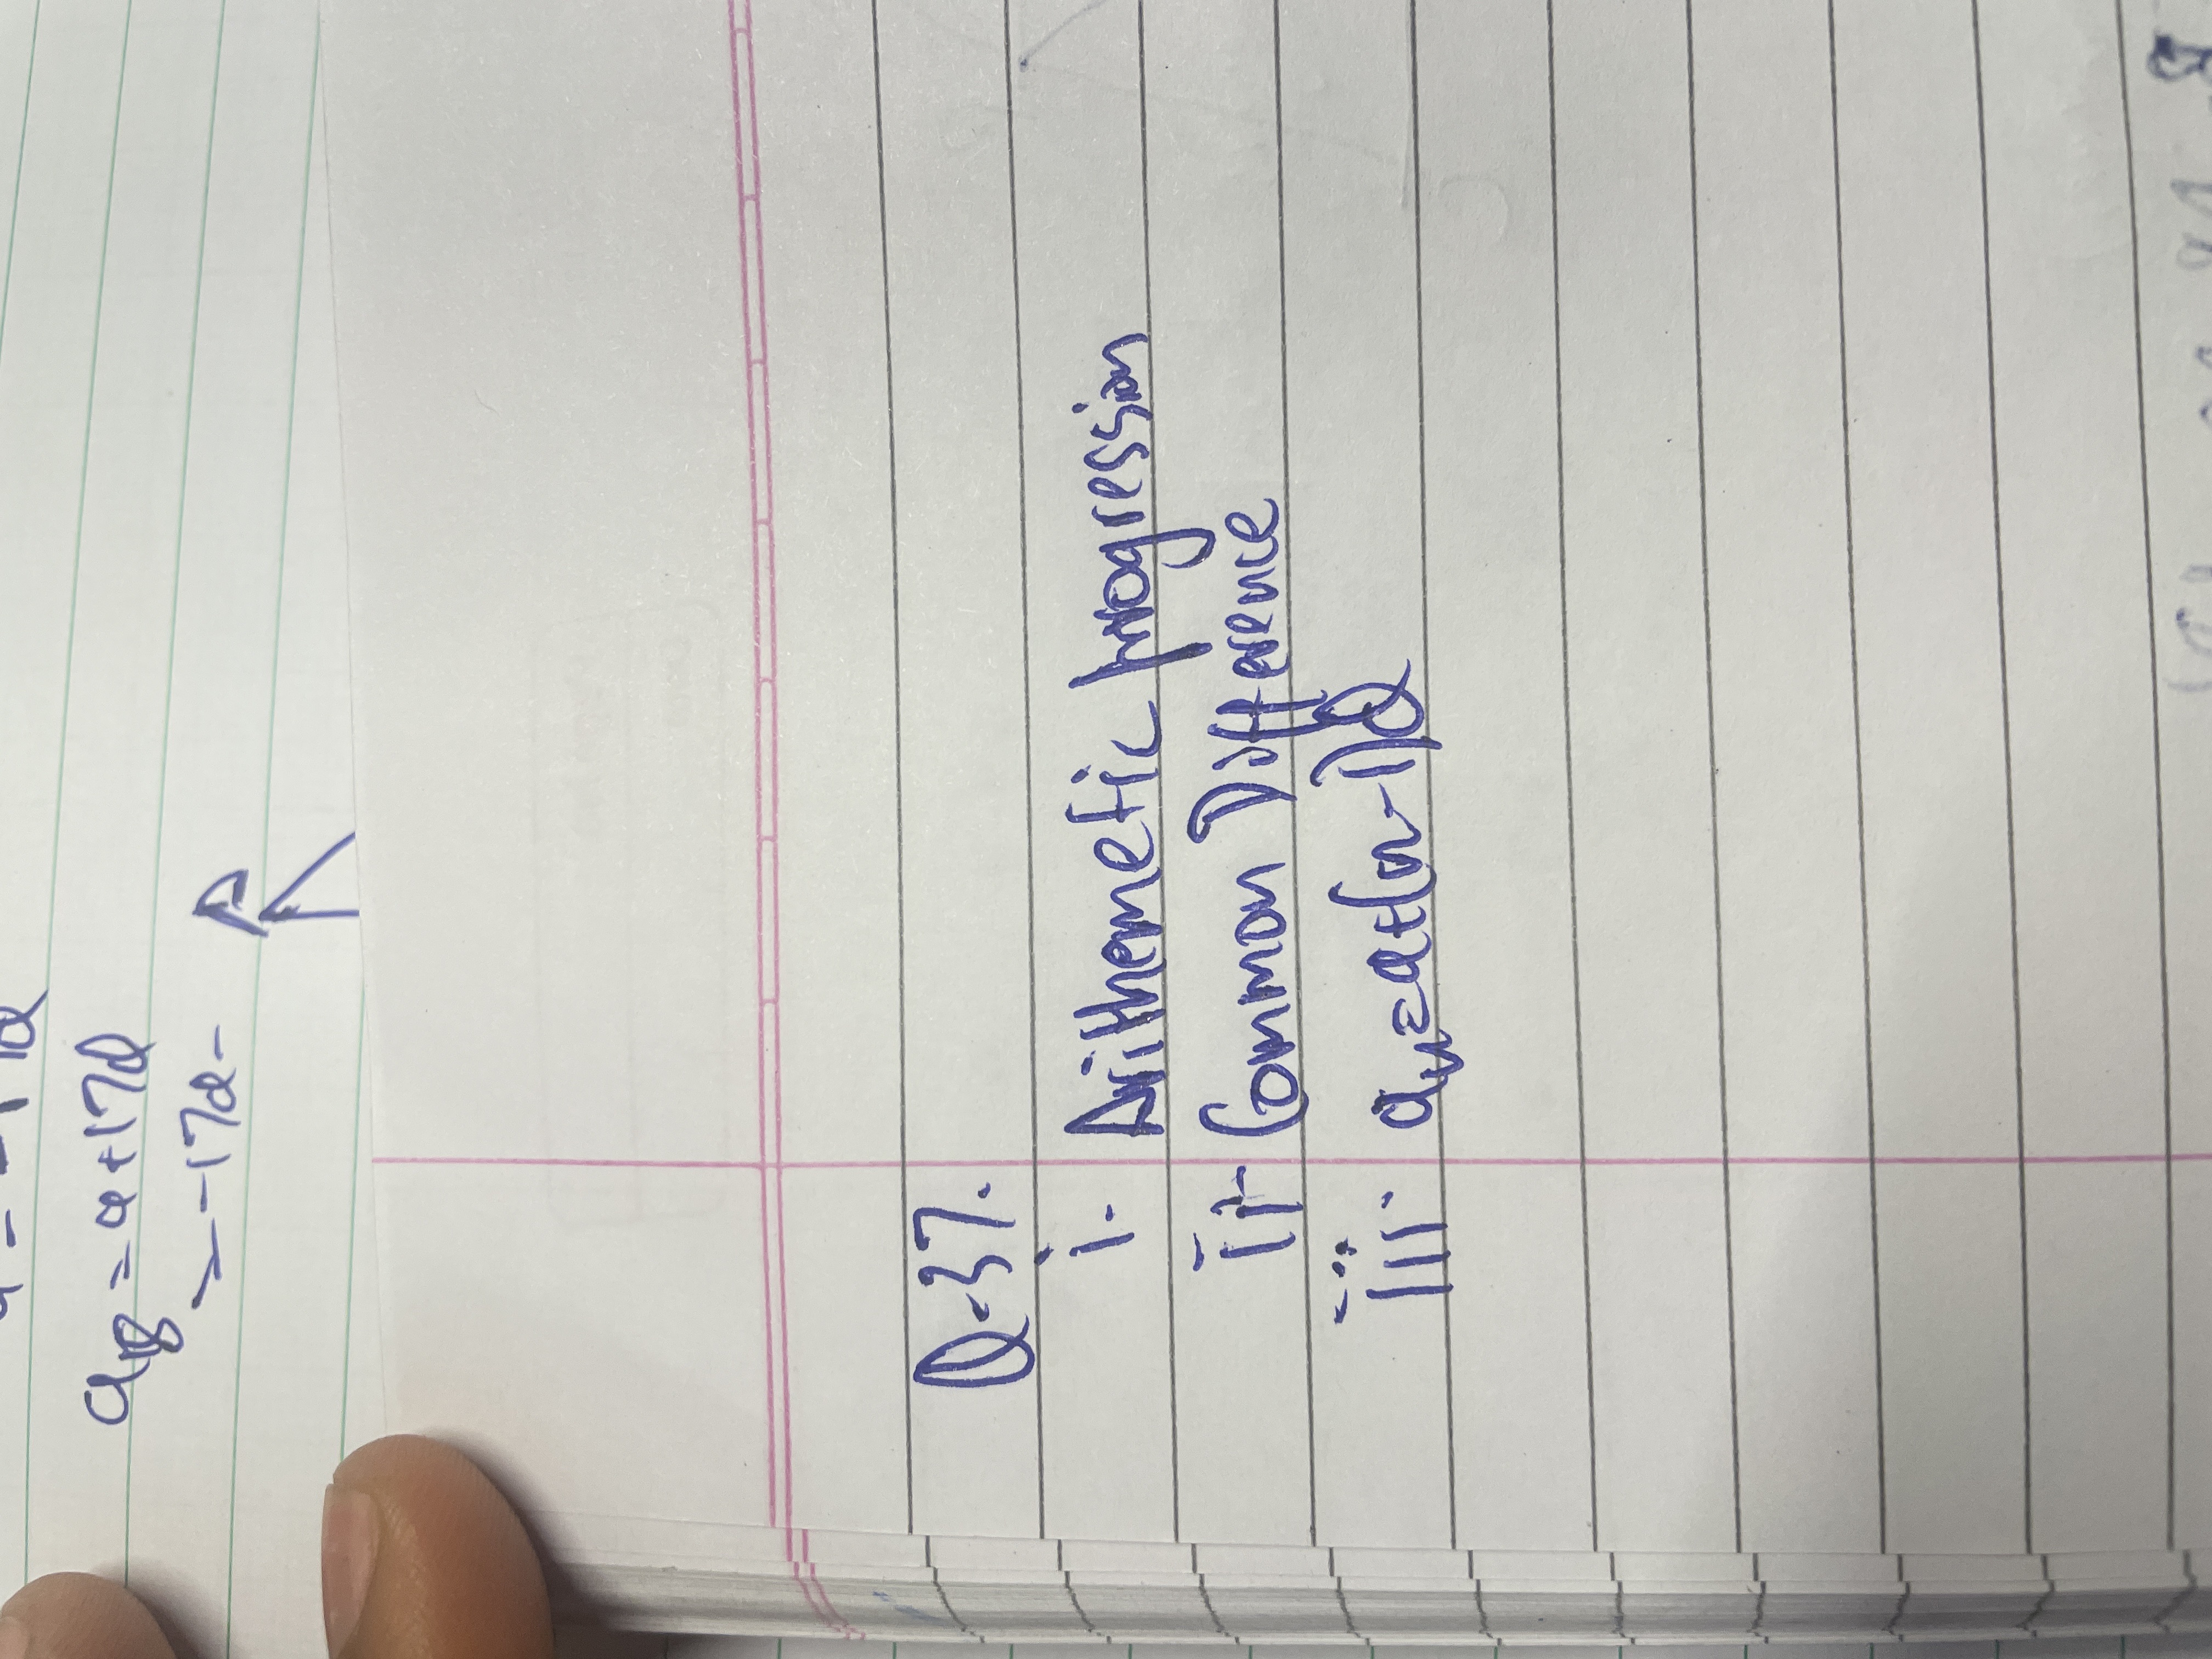 a18 = a+17d
= -17d-
Q-37.
i. Arithemetic progression
ii- Common Difference
iii. an=a+(n-1)d